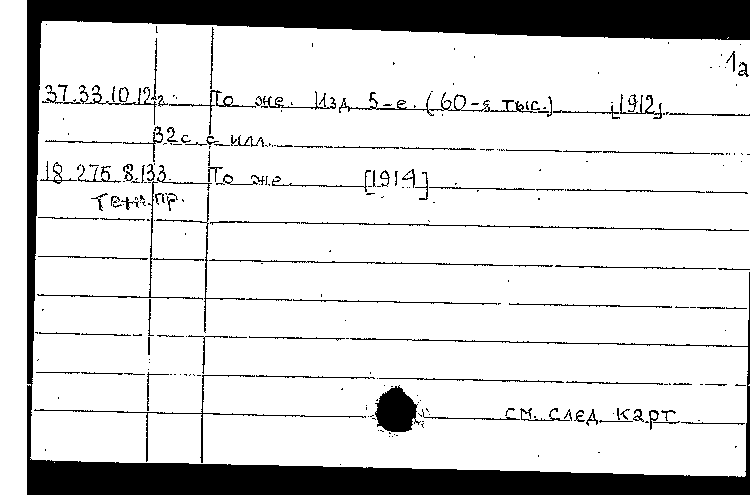 1а
37.33.10.12а. То же. Изд 5-е. (60-я тыс.) [1912]
32с. с илл.
18.275.8.133. То же. [1914]
пр.
см. след. карт